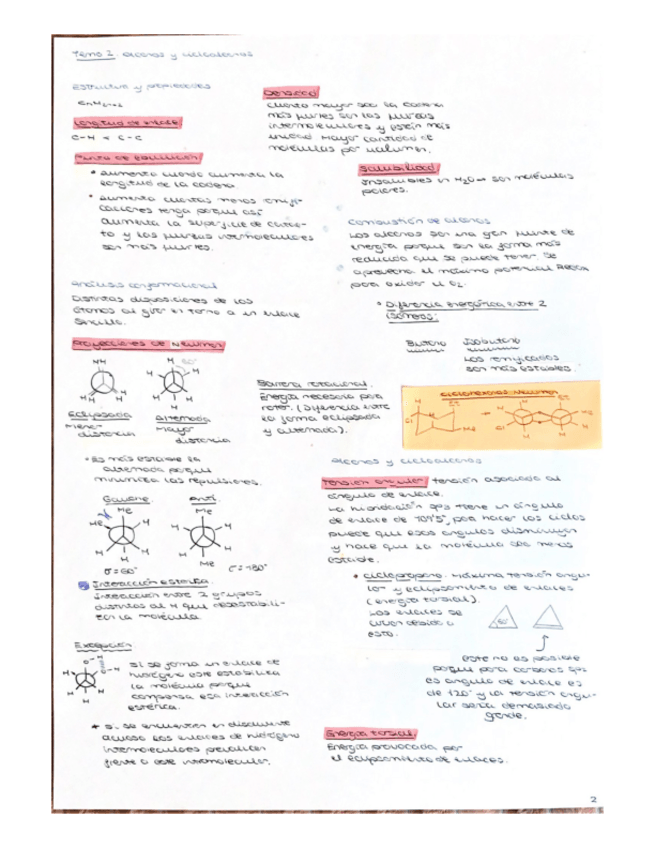 Tema 2: alcanos y cicloalcanos
Estructura y propiedades
CnH2n+2
Longitud de enlace
C-H < C-C
Punto de ebullición
• aumenta cuando aumenta la
longitud de la cadena.
• aumenta cuantas menos ramifi-
caciones tenga porque así
aumenta la superficie de contac-
to y las fuerzas intermoleculares
son más fuertes.
Densidad
cuanto mayor sea la cadena
más fuertes son las fuerzas
intermoleculares y están más
unidas. Mayor cantidad de
moléculas por volumen.
Solubilidad
Insolubles en H2O → son moléculas
polares.
Combustión de alcanos
Los alcanos son una gran fuente de
energía porque son la forma más
reducida que se puede tener. Se
aprovecha el máximo potencial redox
para oxidar el O2.
• Diferencia energética entre 2
isómeros:
Butano Isobutano
Los ramificados
son más estables.
Análisis conformacional
Distintas disposiciones de los
átomos al girar en torno a un enlace
sencillo.
Proyecciones de Newman
HH
H
H
H
H
60°
H
H
H
H
H
Eclipsada
Menor
distancia
Alternada
Mayor
distancia
Barrera rotacional.
Energía necesaria para
rotar. (Diferencia entre
la forma eclipsada
y alternada).
ciclohexano Newman
Me
H
H
H
H
• Es más estable la
alternada porque
minimiza las repulsiones.
Gauche
Me
Me
H
H
H
H
σ = 60°
Anti
Me
H
H
H
H
Me
σ = 180°
Interacción estérica.
Interacción entre 2 grupos
distintos al H que desestabili-
zan la molécula.
Excepción
H
H
H
H
si se forma un enlace de
hidrógeno este estabiliza
la molécula porque
compensa esa interacción
estérica.
* si se encuentran en disolvente
acuoso los enlaces de hidrógeno
intermoleculares prevalecen
frente a este intramolecular.
alcanos y cicloalcanos
Tensión angular: tensión asociada al
ángulo de enlace.
La hibridación sp3 tiene un ángulo
de enlace de 109'5°, por hacer los ciclos
puede que esos ángulos disminuyan
y hace que la molécula sea menos
estable.
• Ciclopropano. Máxima tensión angu-
lar y eclipsamiento de enlaces
(energía torsional).
Los enlaces se
curvan debido a
esto.
60°
este no es posible
porque para carbonos sp2
es ángulo de enlace es
de 120° y la tensión angu-
lar sería demasiado
grande.
Energía torsional.
Energía provocada por
el eclipsamiento de enlaces.
2